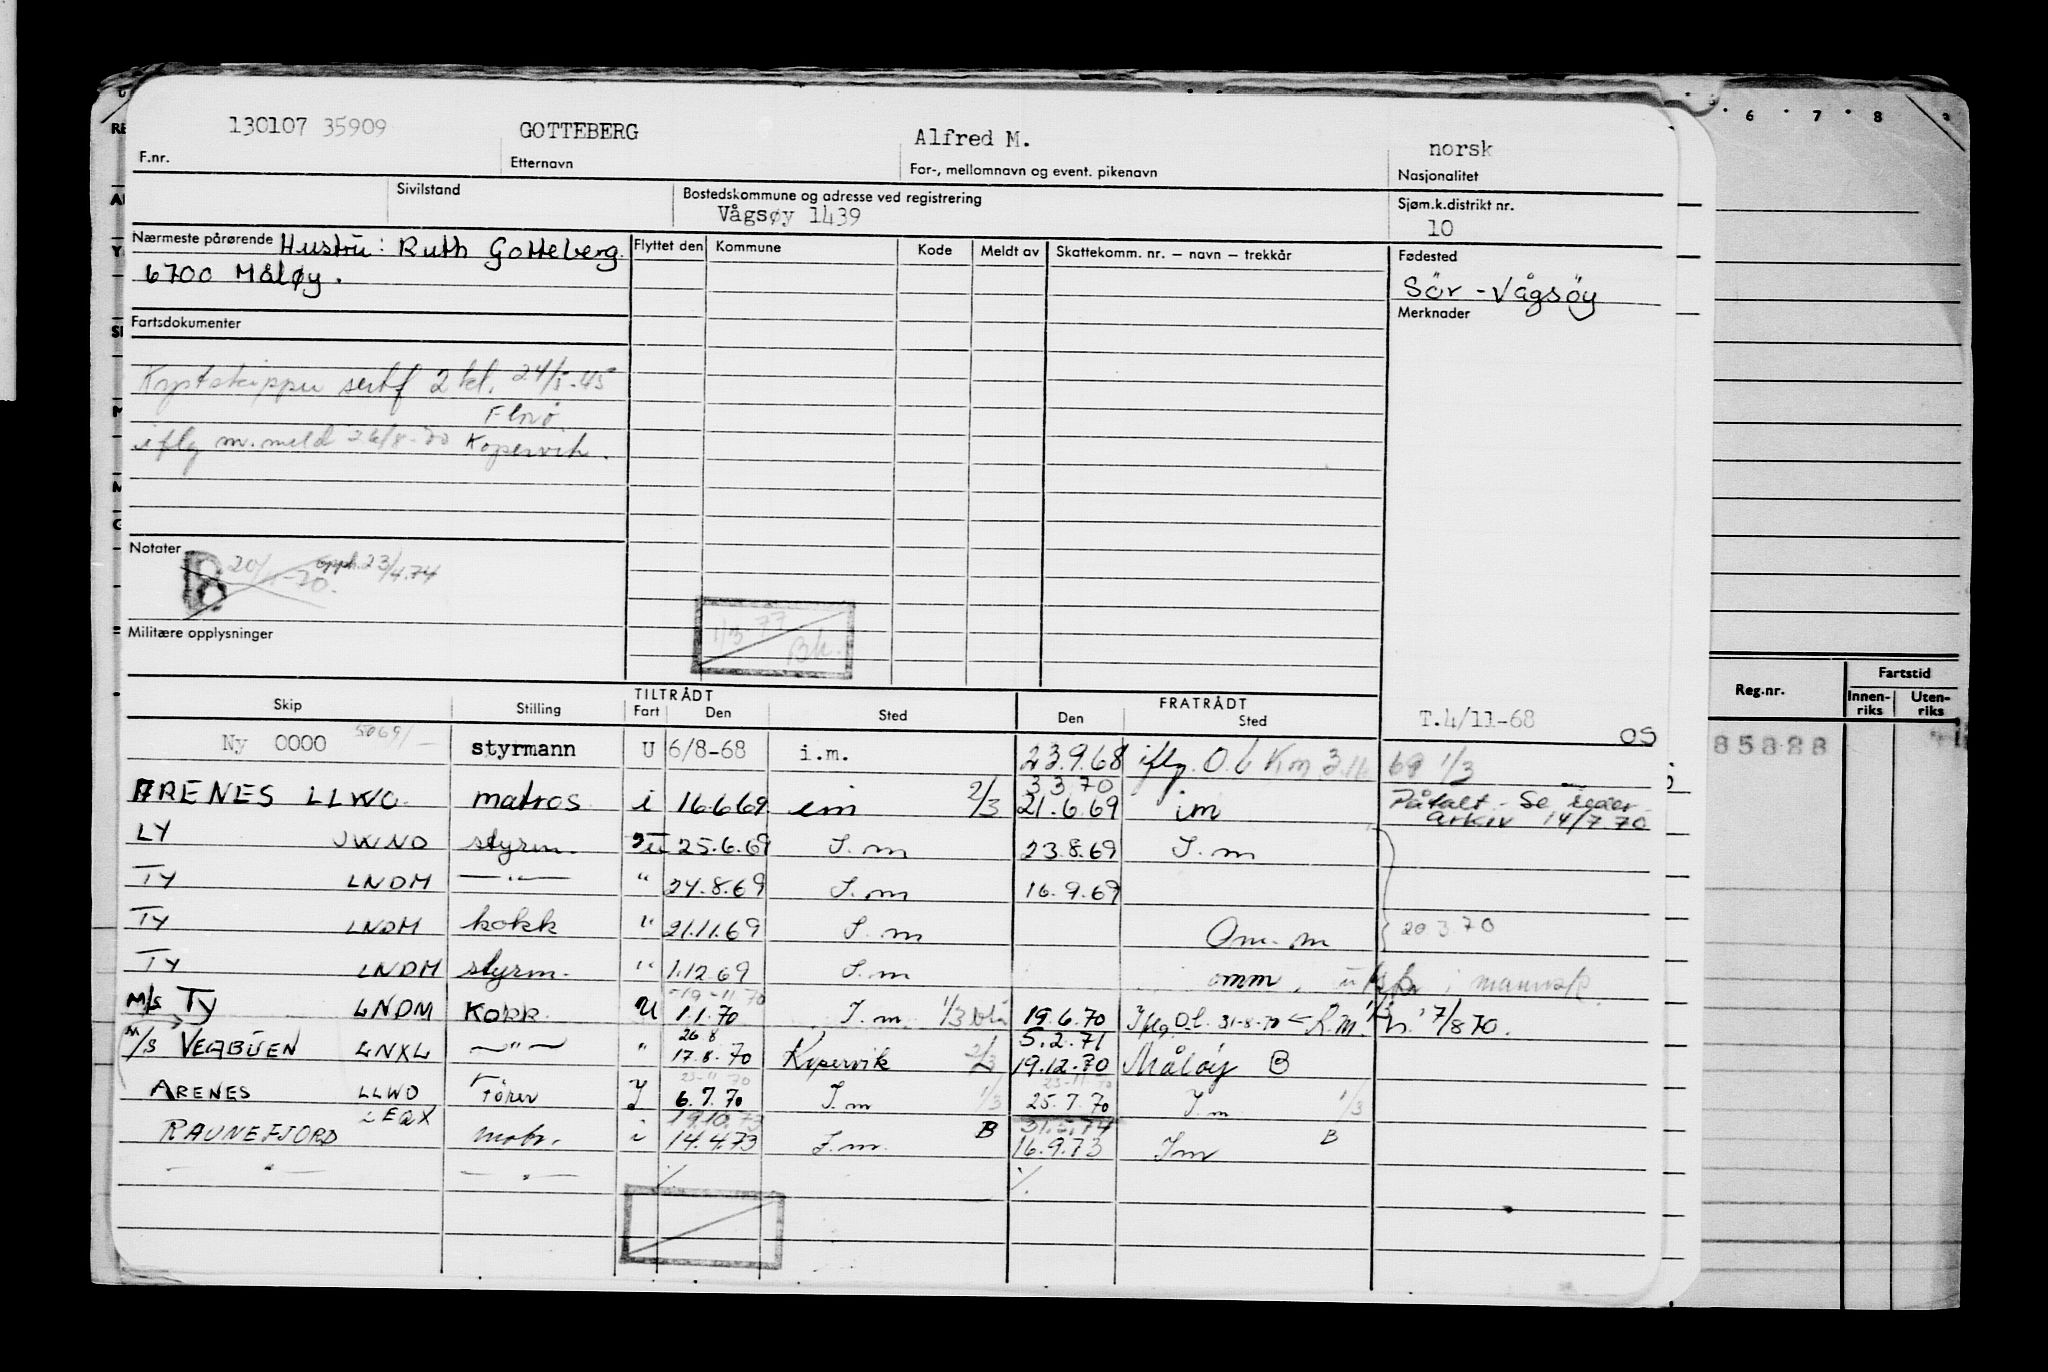 130107 35909 GOTTEBERG Alfred M. norsk
F.nr. Etternavn For-, mellomnavn og event. pikenavn Nasjonalitet
Sivilstand Bostedskommune og adresse ved registrering Sjøm.k.distrikt nr.
Vågsøy 1439 10
Nærmeste pårørende Hustru: Ruth Gotteberg. Flyttet den Kommune Kode Meldt av Skattekomm. nr. – navn – trekkår Fødested
6700 Måløy. Sör - Vågsöy
Fartsdokumenter Merknader
Kystskipper sertf 2 kl. 24/5-45
Florö
iflg m.meld 26/8-70 Kopervik.
Notater
B 20/ -70. opph. 23/4.74
1/3 77
Bh.
Militære opplysninger
TILTRÅDT FRATRÅDT
Skip Stilling Fart Den Sted Den Sted
Reg.nr. Fartstid
Innen-riks Uten-riks
T.4/11-68
OS
85888
Ny 0000 5069/- styrmann U 6/8-68 i.m. 23.9.68 iflg. O.b 69 1/3
3 3 70
ARENES LLWO. matros i 16.6.69 im 2/3 21.6.69 im Påtalt - Se reder arkiv 14/7 70
LY JWNO styrm. U 25.6.69 I.m 23.8.69 I.m
TY LNDM —"— " 24.8.69 I.m 16.9.69
TY LNDM kokk " 21.11.69 I.m Om.m 20 3 70
TY LNDM styrm. " 1.12.69 I.m omm. i mannsk.
-19-11 70
M/S TY LNDM Kokk. U 1.1.70 I.m. 1/3 19.6.70 Iflg O.l. 31-8-70 R.M. 17/8 70.
26 8 5.2.71
M/S VEABUEN LNXL —"— " 17.8.70 Kopervik 2/3 19.12.70 Måløy B
23-11 70 23-11 70
ARENES LLWO Fører I 6.7.70 I.m 1/3 25.7.70 I.m 1/3
LEQX 19.10.73 31.5.74
RAUNEFJORD matr. i 14.4.73 I.m. B 16.9.73 Im B
— " — — " — %. %.